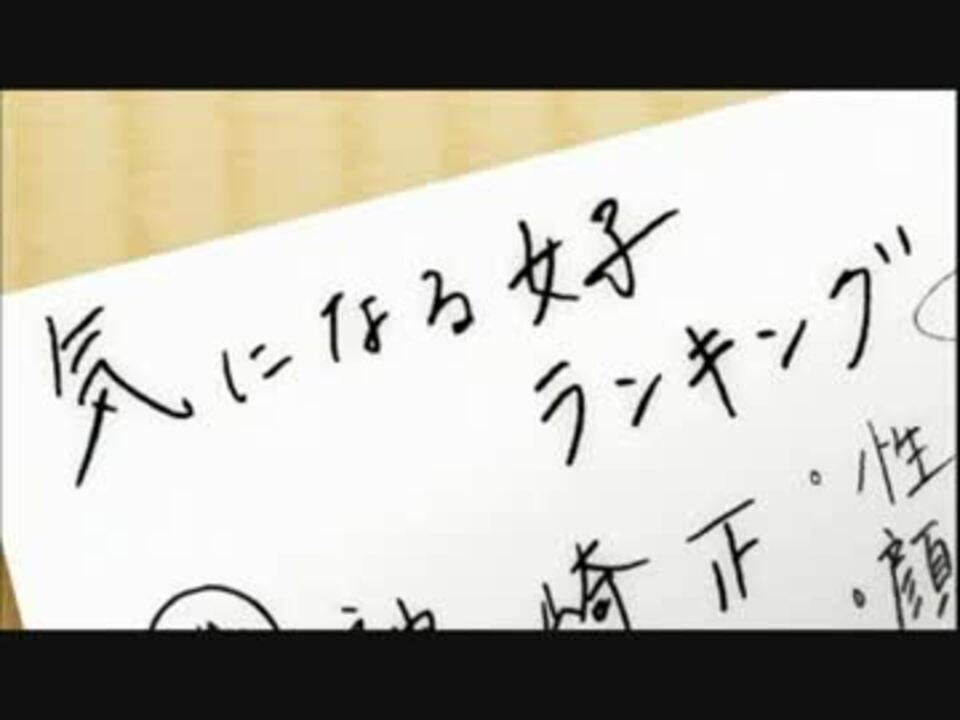 気になる女子
ランキング
・性
崎 正
・顔